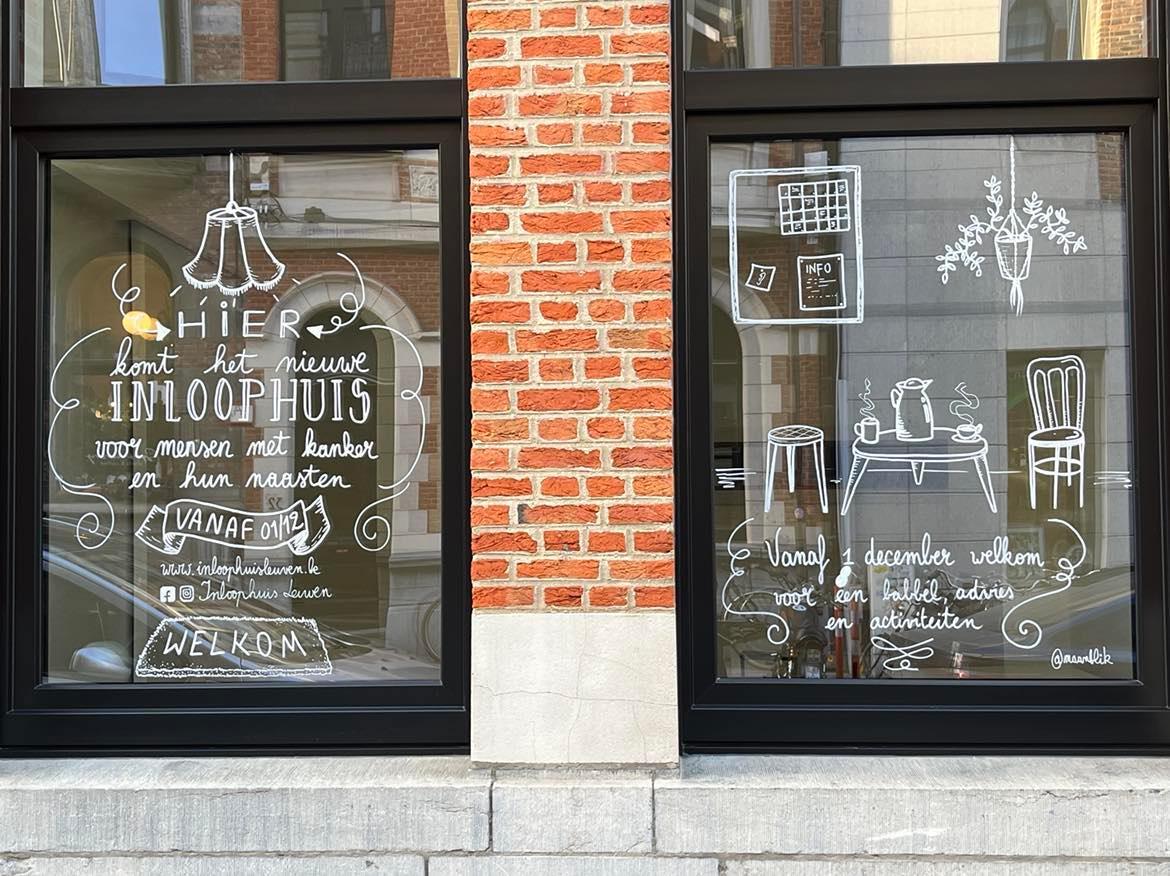 HIER
komt het nieuwe
INLOOPHUIS
voor mensen met kanker
en hun naasten
VANAF 01/12
www.inloophuisleuven.be
Inloophuis Leuven
WELKOM
INFO
Vanaf 1 december welkom
voor een babbel, advies
en activiteiten
@maanblik